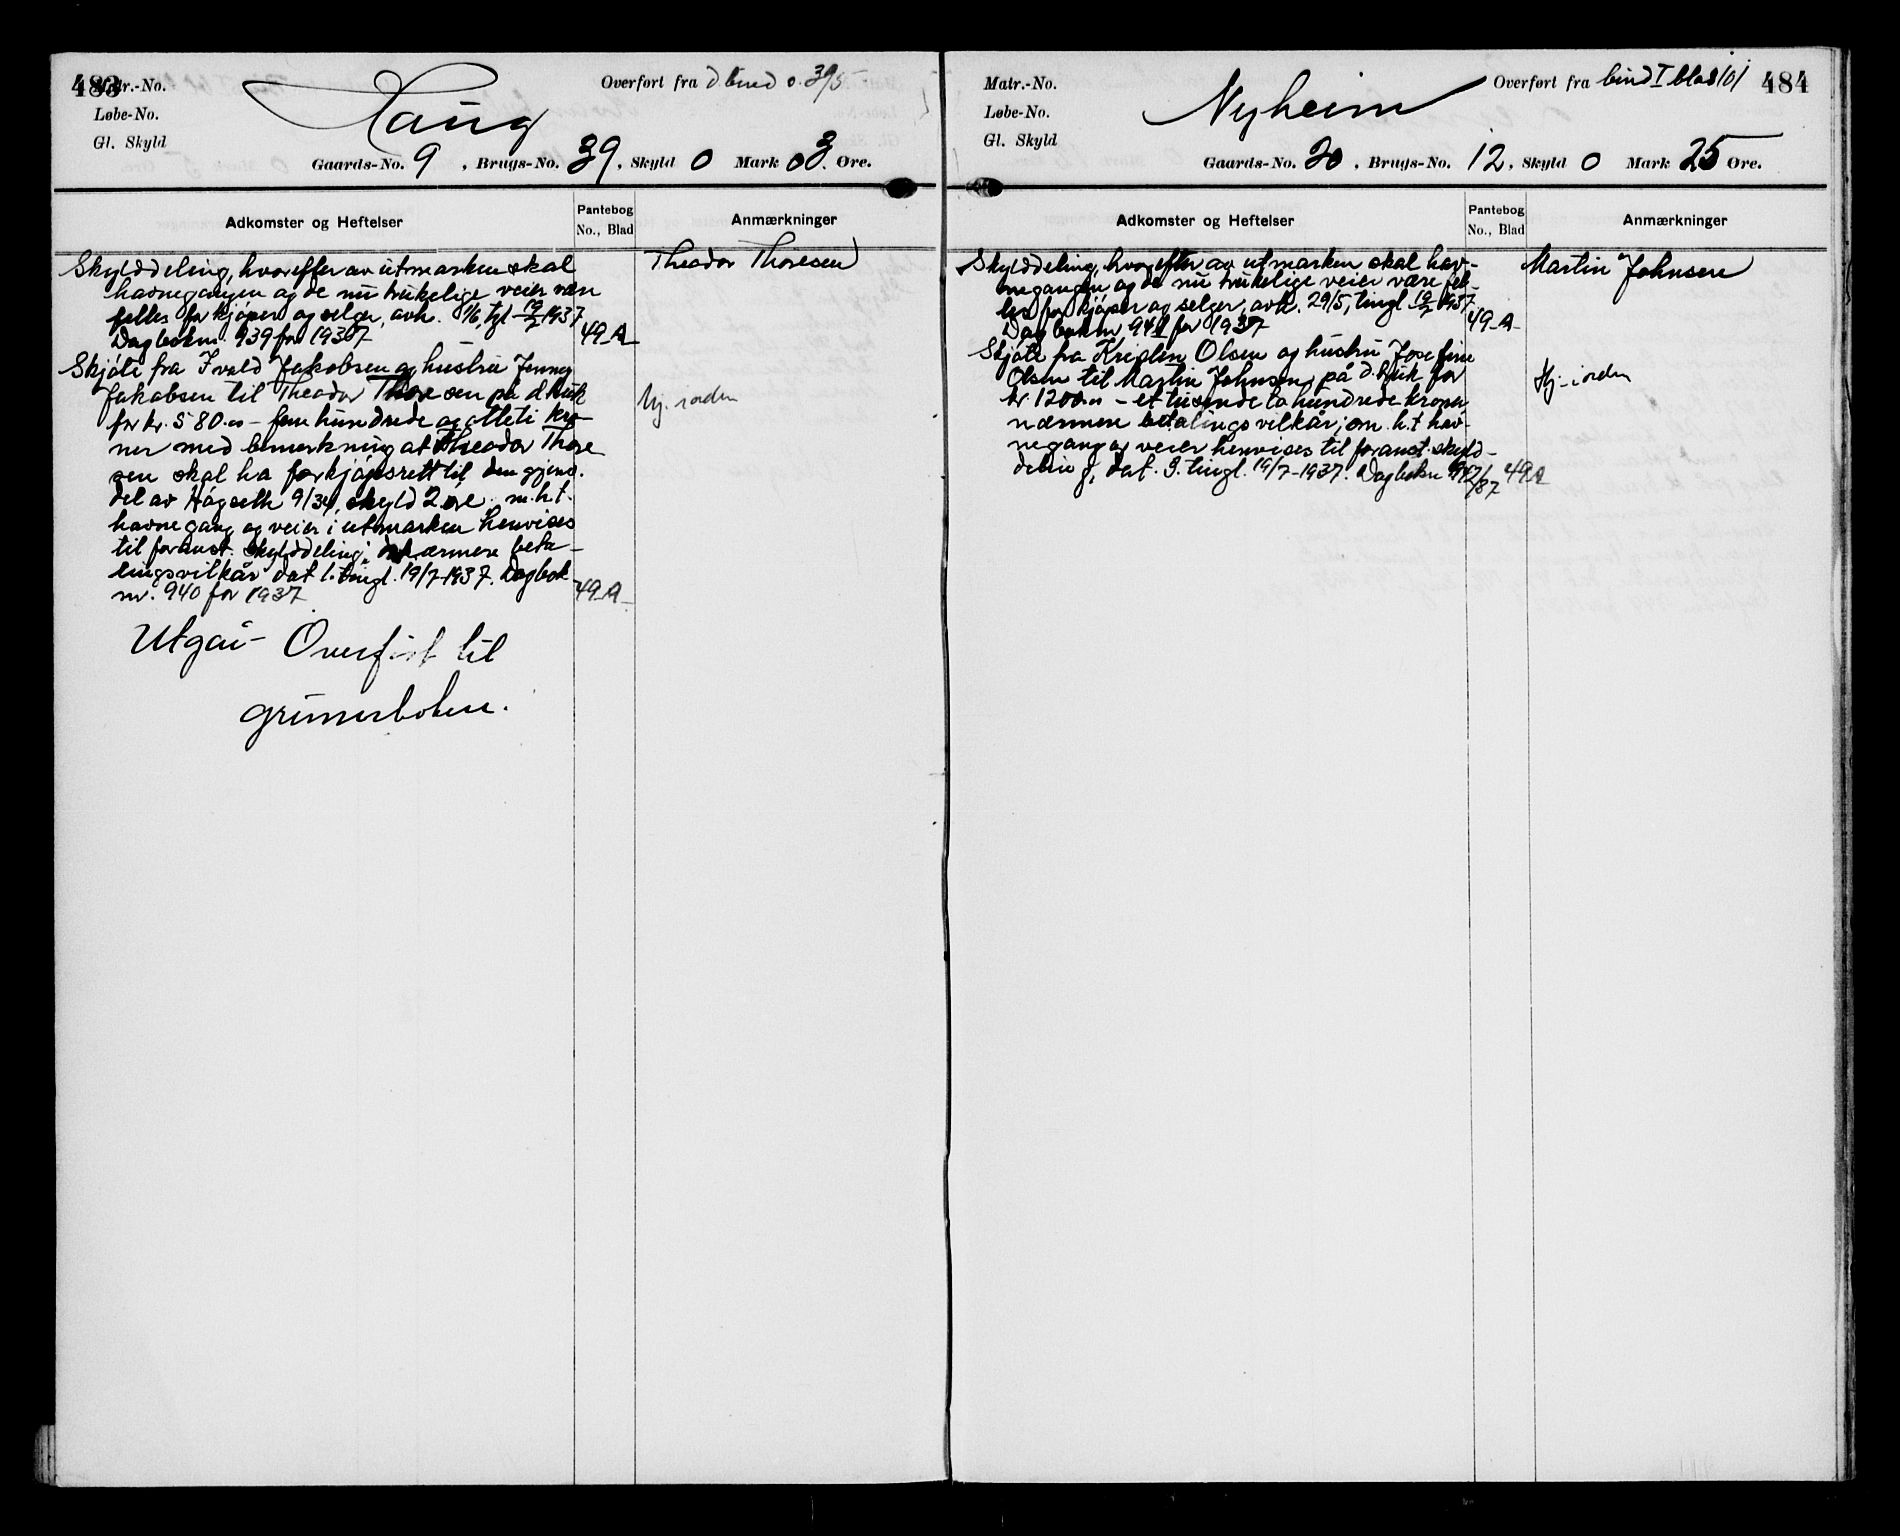 483
Matr.-No.
Løbe-No.
Gl. Skyld
Haug
Overført fra d bind s. 395
Gaards-No. 9, Brugs-No. 39, Skyld 0 Mark 03 Øre.
Adkomster og Heftelser
Pantebog
No., Blad
Anmærkninger
Skylddeling, hvorefter av utmarken skal
havnegangen og de nu brukelige veier være
felles for kjøper og selger, avh. 1/6, tgl 19/7 1937
Dagboknr. 939 for 1937
49-A-
Theodor Thoresen
Skjøte fra Ivald Jakobsen og hustru Jenny
Jakobsen til Theodor Thoresen på d bruk
for kr. 580.00 – fem hundrede og otteti kro-
ner med bemerkning at Theodor Thore
sen skal ha forkjøpsrett til den gjenv.
del av Høgseth 9/34, skyld 2 øre m.h.t.
havnegang og veier i utmarken henvises
til foranst. skylddeling; nærmere beta-
lingsvilkår dat 1. tingl. 19/7-1937. Dagbok
nr. 940 for 1937
49-A-
Hj. i orden
Utgår – Overført til
grunnboken.
Matr.-No.
Løbe-No.
Gl. Skyld
Nyheim
Overført fra bind I blad 101
484
Gaards-No. 20, Brugs-No. 12, Skyld 0 Mark 25 Øre.
Adkomster og Heftelser
Pantebog
No., Blad
Anmærkninger
Skylddeling, hvorefter av utmarken skal hav-
negangen og de nu brukelige veier være fel-
les for kjøper og selger, avh. 29/5, tingl 19/7 1937
Dagboknr 941 for 1937
49-A-
Martin Johnsen
Skjøte fra Kristen Olsen og hustru Josefine
Olsen til Martin Johnsen på d. bruk for
kr. 1200.00 – et tusinde to hundrede kroner
nærmere betalingsvilkår; om h.t hav-
negang og veier henvises til foranst. skyld-
deling, dat. 3. tingl. 19/7-1937. Dagboknr 942/37
49A
Hj. i orden